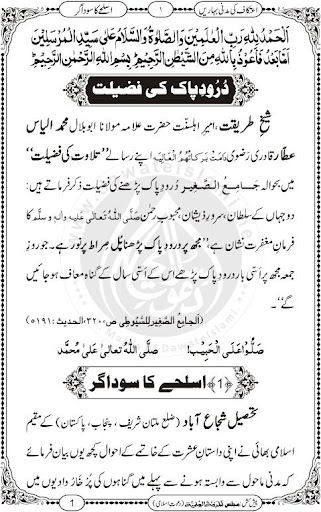 اعتکاف کی مدنی بہاریں ۱ اسلحے کا سوداگر
اَلْحَمْدُ لِلّٰہِ رَبِّ الْعٰلَمِیْنَ وَالصَّلٰوۃُ وَالسَّلَامُ عَلٰی سَیِّدِ الْمُرْسَلِیْنَ
اَمَّا بَعْدُ فَاَعُوْذُ بِاللّٰہِ مِنَ الشَّیْطٰنِ الرَّجِیْمِ بِسْمِ اللّٰہِ الرَّحْمٰنِ الرَّحِیْمِ
دُرُودِ پاک کی فضیلت
شیخِ طریقت، امیرِ اہلسنّت حضرت علامہ مولانا ابوبلال محمد الیاس
عطّار قادری رضوی دَامَتْ بَرَکَاتُہُمُ الْعَالِیَہ اپنے رسالے "تلاوت کی فضیلت"
میں بحوالہ جَامِعُ الصَّغِیْر دُرود پاک پڑھنے کی فضیلت ذکر فرماتے ہیں:
دو جہاں کے سلطان، سرورِ ذیشان، محبوبِ رحمٰن صَلَّی اللّٰہُ تَعَالٰی عَلَیْہِ وَاٰلِہٖ وَسَلَّم کا
فرمانِ مغفرت نشان ہے، "مجھ پر درود پاک پڑھنا پُل صراط پر نور ہے۔ جو روزِ
جمعہ مجھ پر اَسّی بار درود پاک پڑھے اُس کے اَسّی سال کے گناہ معاف ہو جائیں
گے"۔
(اَلجامِعُ الصَّغِیْر لِلسُّیُوْطِی ص ۳۲۰، الحدیث: ۵۱۹۱)
صَلُّوْا عَلَی الْحَبِیْب! صَلَّی اللّٰہُ تَعَالٰی عَلٰی مُحَمَّد
﴿1﴾ اسلحے کا سوداگر
تحصیل شجاع آباد (ضلع ملتان شریف، پنجاب، پاکستان) کے مقیم
اسلامی بھائی نے اپنی داستانِ عشرت کے خاتمے کے احوال کچھ یوں بیان فرمائے
کہ مدنی ماحول سے وابستہ ہونے سے پہلے میں گناہوں کی پُر خار وادیوں میں
پیش کش: مجلس (دعوتِ اسلامی) 1